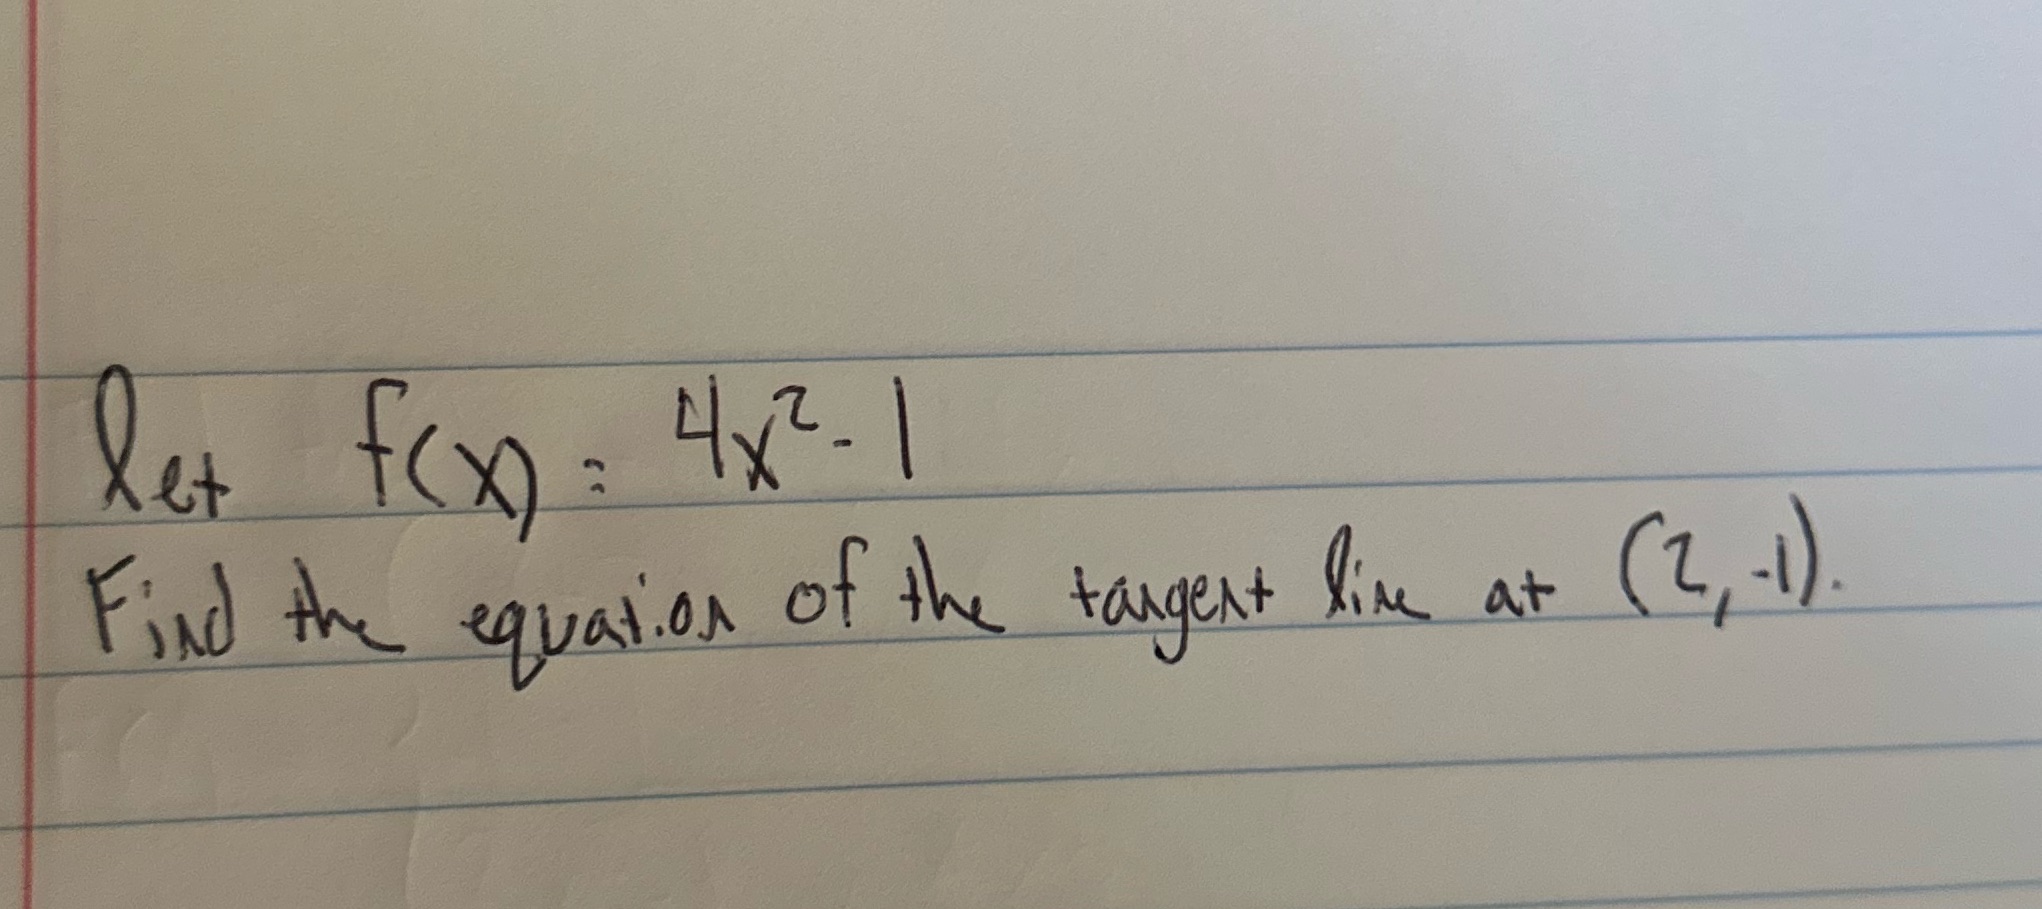 let f(x) = 4x² - 1
Find the equation of the tangent line at (2, -1).